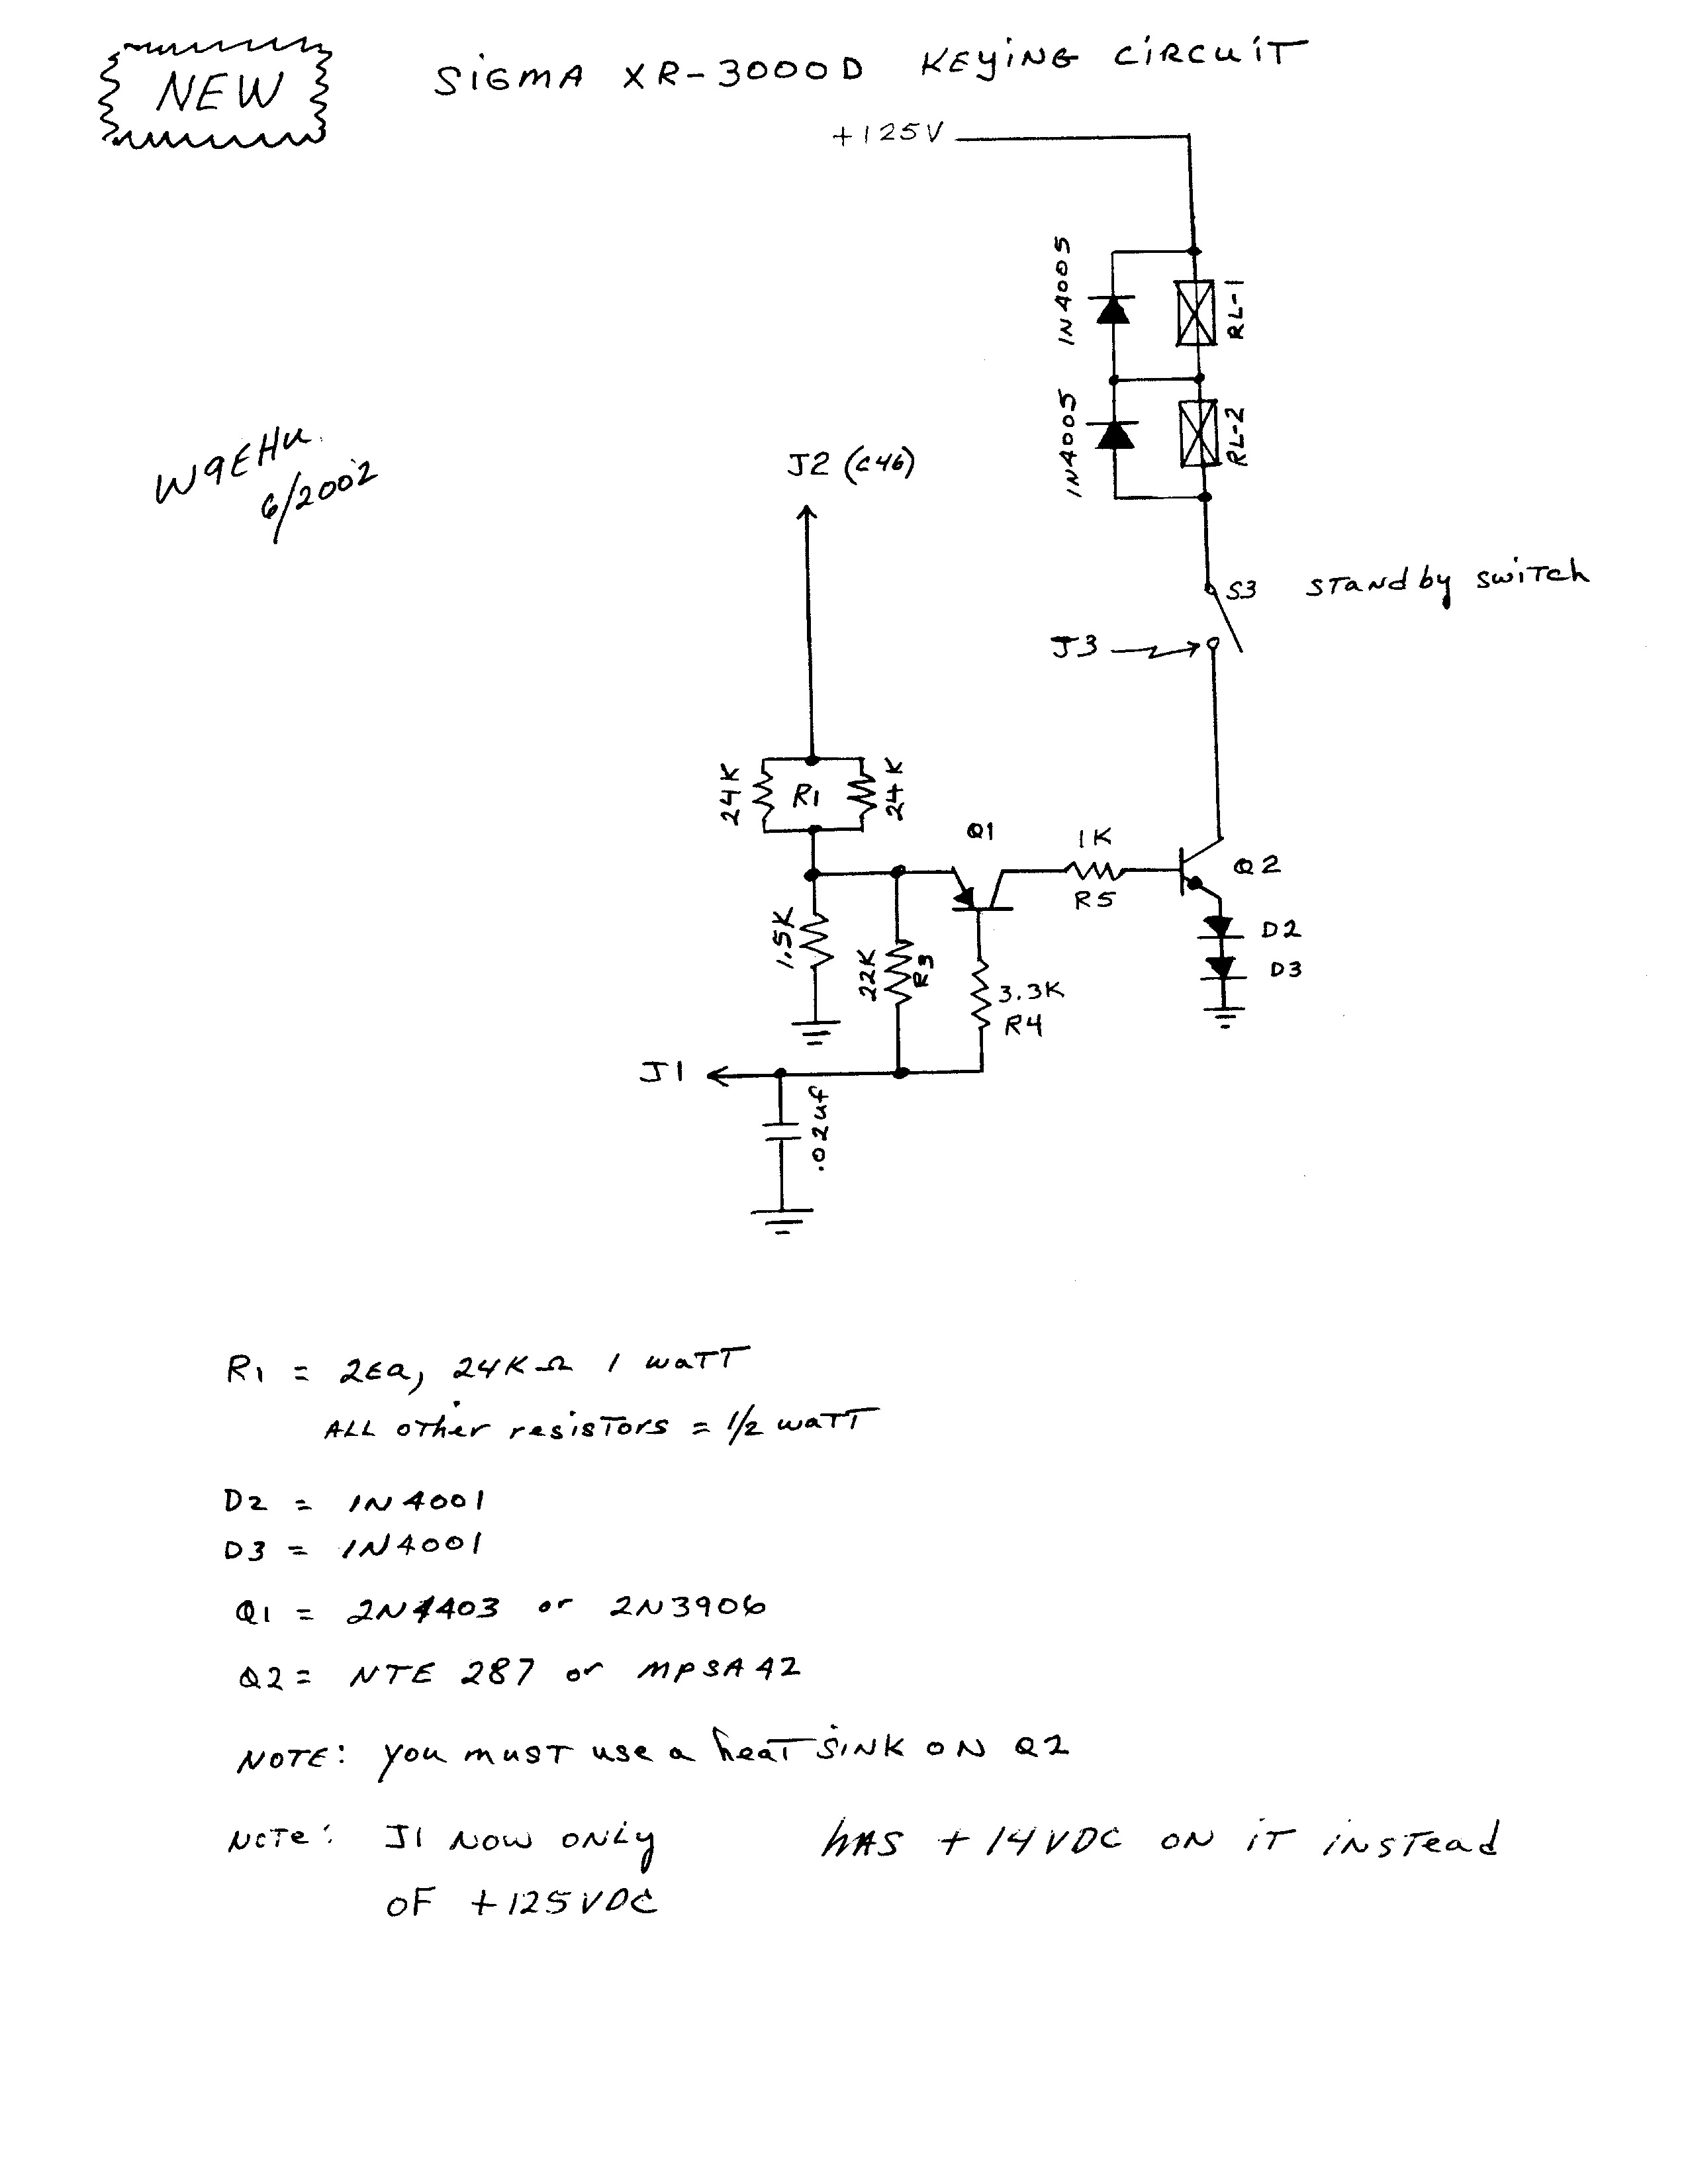 NEW
SIGMA XR-3000D KEYING CIRCUIT
+125V
1N4005
RL-1
1N4005
RL-2
W9EHU
6/2002
J2 (C46)
S3 STANDby SWITCH
J3
24K
R1
24K
Q1
1K
R5
Q2
1.5K
22K
R3
3.3K
R4
D2
D3
J1
.02uf
R1 = 2Ea, 24KΩ 1 WATT
ALL other resistors = 1/2 WATT
D2 = 1N4001
D3 = 1N4001
Q1 = 2N4403 or 2N3906
Q2 = NTE 287 or MPSA42
NOTE: you must use a heat sink on Q2
NOTE: J1 NOW ONLY HAS +14VDC ON IT INSTEAD
OF +125VDC